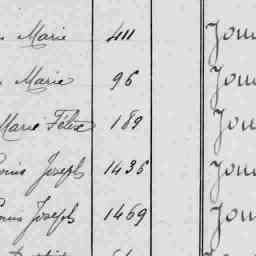 Marie 411 Jou
Marie 96 Jou
Marie Félix 189 Jou
Louis Joseph 1435 Jou
Louis Joseph 1469 Jou